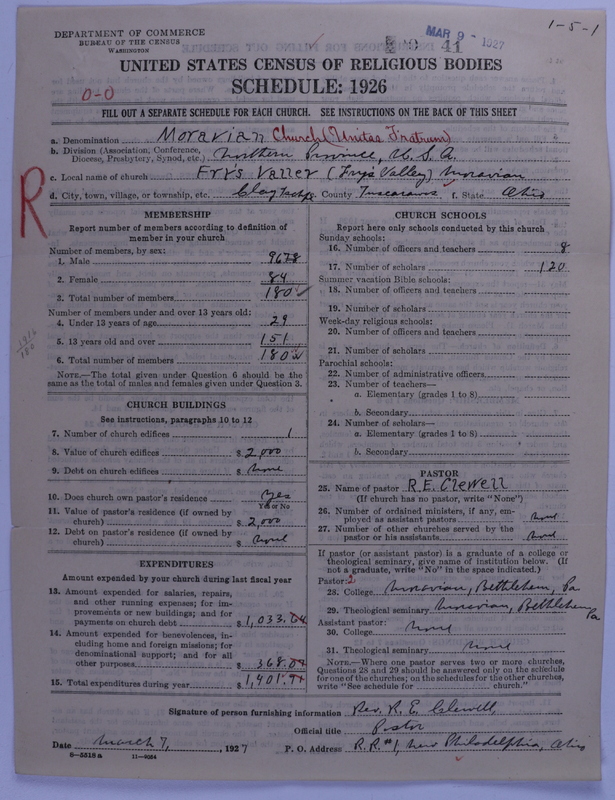 1-5-1
DEPARTMENT OF COMMERCE
BUREAU OF THE CENSUS
WASHINGTON
41
MAR 9 - 1927
UNITED STATES CENSUS OF RELIGIOUS BODIES
SCHEDULE: 1926
0-0
FILL OUT A SEPARATE SCHEDULE FOR EACH CHURCH. SEE INSTRUCTIONS ON THE BACK OF THIS SHEET
a. Denomination Moravian Church (Unitas Fratrum)
b. Division (Association, Conference, Diocese, Presbytery, Synod, etc.) Northern Province, U.S.A.
c. Local name of church Frys Valley (Frys Valley) Moravian
d. City, town, village, or township, etc. Clay Twshp e. County Tuscarawas f. State Ohio
R
MEMBERSHIP
Report number of members according to definition of member in your church
Number of members, by sex:
1. Male 96
2. Female 84
3. Total number of members 180
Number of members under and over 13 years old:
4. Under 13 years of age 29
5. 13 years old and over 151
6. Total number of members 180
NOTE.—The total given under Question 6 should be the same as the total of males and females given under Question 3.
1916
186
CHURCH BUILDINGS
See instructions, paragraphs 10 to 12
7. Number of church edifices 1
8. Value of church edifices $ 2,000
9. Debt on church edifices $ none
10. Does church own pastor's residence yes
Yes or No
11. Value of pastor's residence (if owned by church) $ 2,000
12. Debt on pastor's residence (if owned by church) $ none
EXPENDITURES
Amount expended by your church during last fiscal year
13. Amount expended for salaries, repairs, and other running expenses; for improvements or new buildings; and for payments on church debt $ 1,033.
14. Amount expended for benevolences, including home and foreign missions; for denominational support; and for all other purposes $ 368.
15. Total expenditures during year $ 1,401.
CHURCH SCHOOLS
Report here only schools conducted by this church
Sunday schools:
16. Number of officers and teachers 8
17. Number of scholars 120
Summer vacation Bible schools:
18. Number of officers and teachers
19. Number of scholars
Week-day religious schools:
20. Number of officers and teachers
21. Number of scholars
Parochial schools:
22. Number of administrative officers
23. Number of teachers—
a. Elementary (grades 1 to 8)
b. Secondary
24. Number of scholars—
a. Elementary (grades 1 to 8)
b. Secondary
PASTOR
25. Name of pastor R.E. Clewell
(If church has no pastor, write "None")
26. Number of ordained ministers, if any, employed as assistant pastors none
27. Number of other churches served by the pastor or his assistants none
If pastor (or assistant pastor) is a graduate of a college or theological seminary, give name of institution below. (If not a graduate, write "No" in the space indicated.)
Pastor: 2
28. College Moravian, Bethlehem, Pa
29. Theological seminary Moravian, Bethlehem Pa
Assistant pastor:
30. College none
31. Theological seminary none
NOTE.—Where one pastor serves two or more churches, Questions 28 and 29 should be answered only on the schedule for one of the churches; on the schedules for the other churches, write "See schedule for church."
Signature of person furnishing information Rev. R. E. Clewell,
Official title Pastor
Date March 7, 1927 P. O. Address R.R.#1, New Philadelphia, Ohio
6—5518a 11—9054